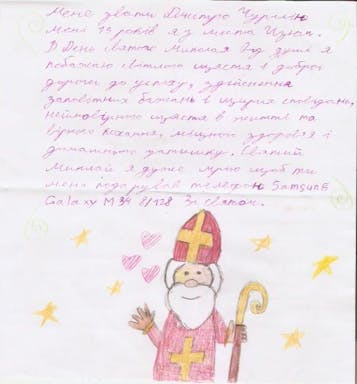 Мене звати Дмитро Чуркін
Мені 13 років я з міста Ізюм.
В День святого Миколая від душі я
побажаю світлого щастя і доброї
дороги до успіху, здійснення
заповітних бажань і щирих сповідань,
неймовірного щастя в житті та
вірного кохання, міцного здоров'я і
домашнього затишку. Святий
Миклай я дуже мрію щоб ти
мені подарував телефон Samsung
Galaxy M34 8/128 Зі святом.